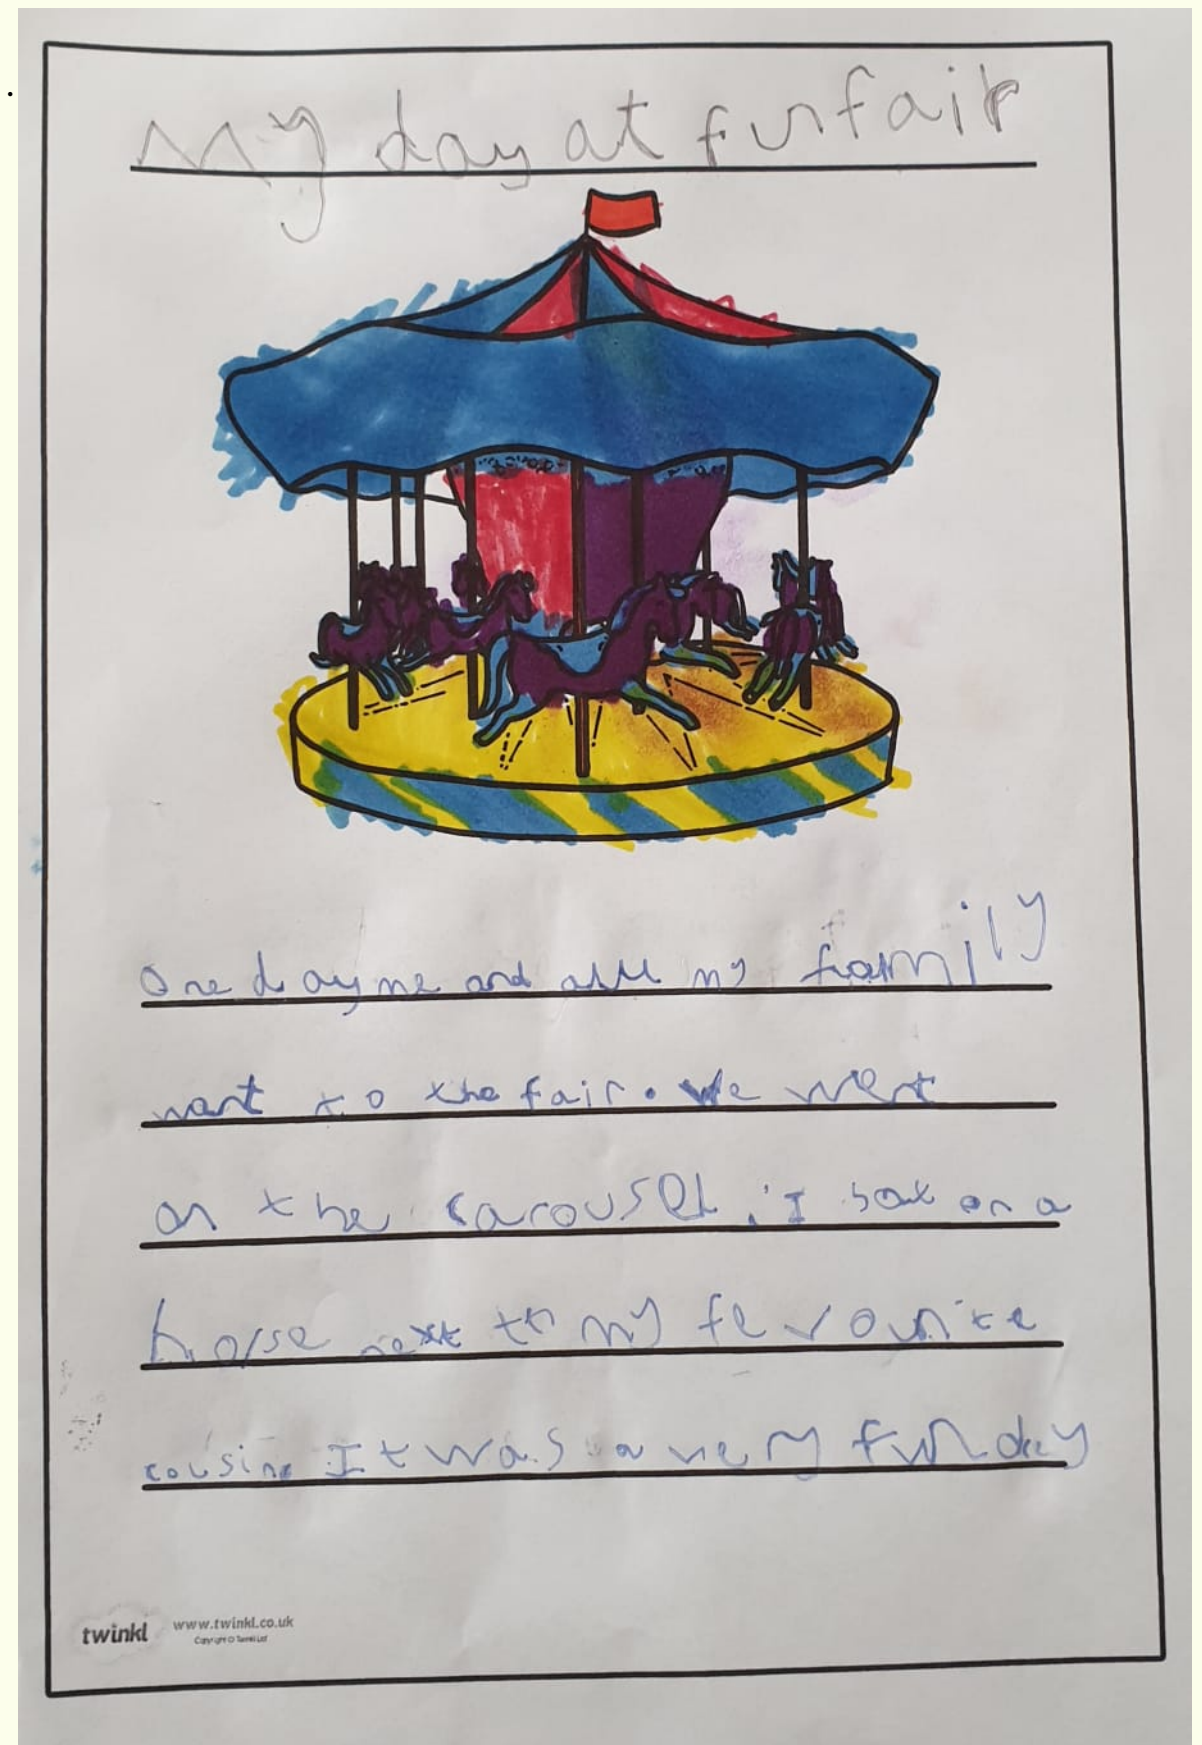 My day at funfair
One day me and all my family
want to the fair. We went
on the carousel. I sat on a
horse next to my fevourite
cousin. It was a very fun day
twinkl
www.twinkl.co.uk
Copyright © Twinkl Ltd